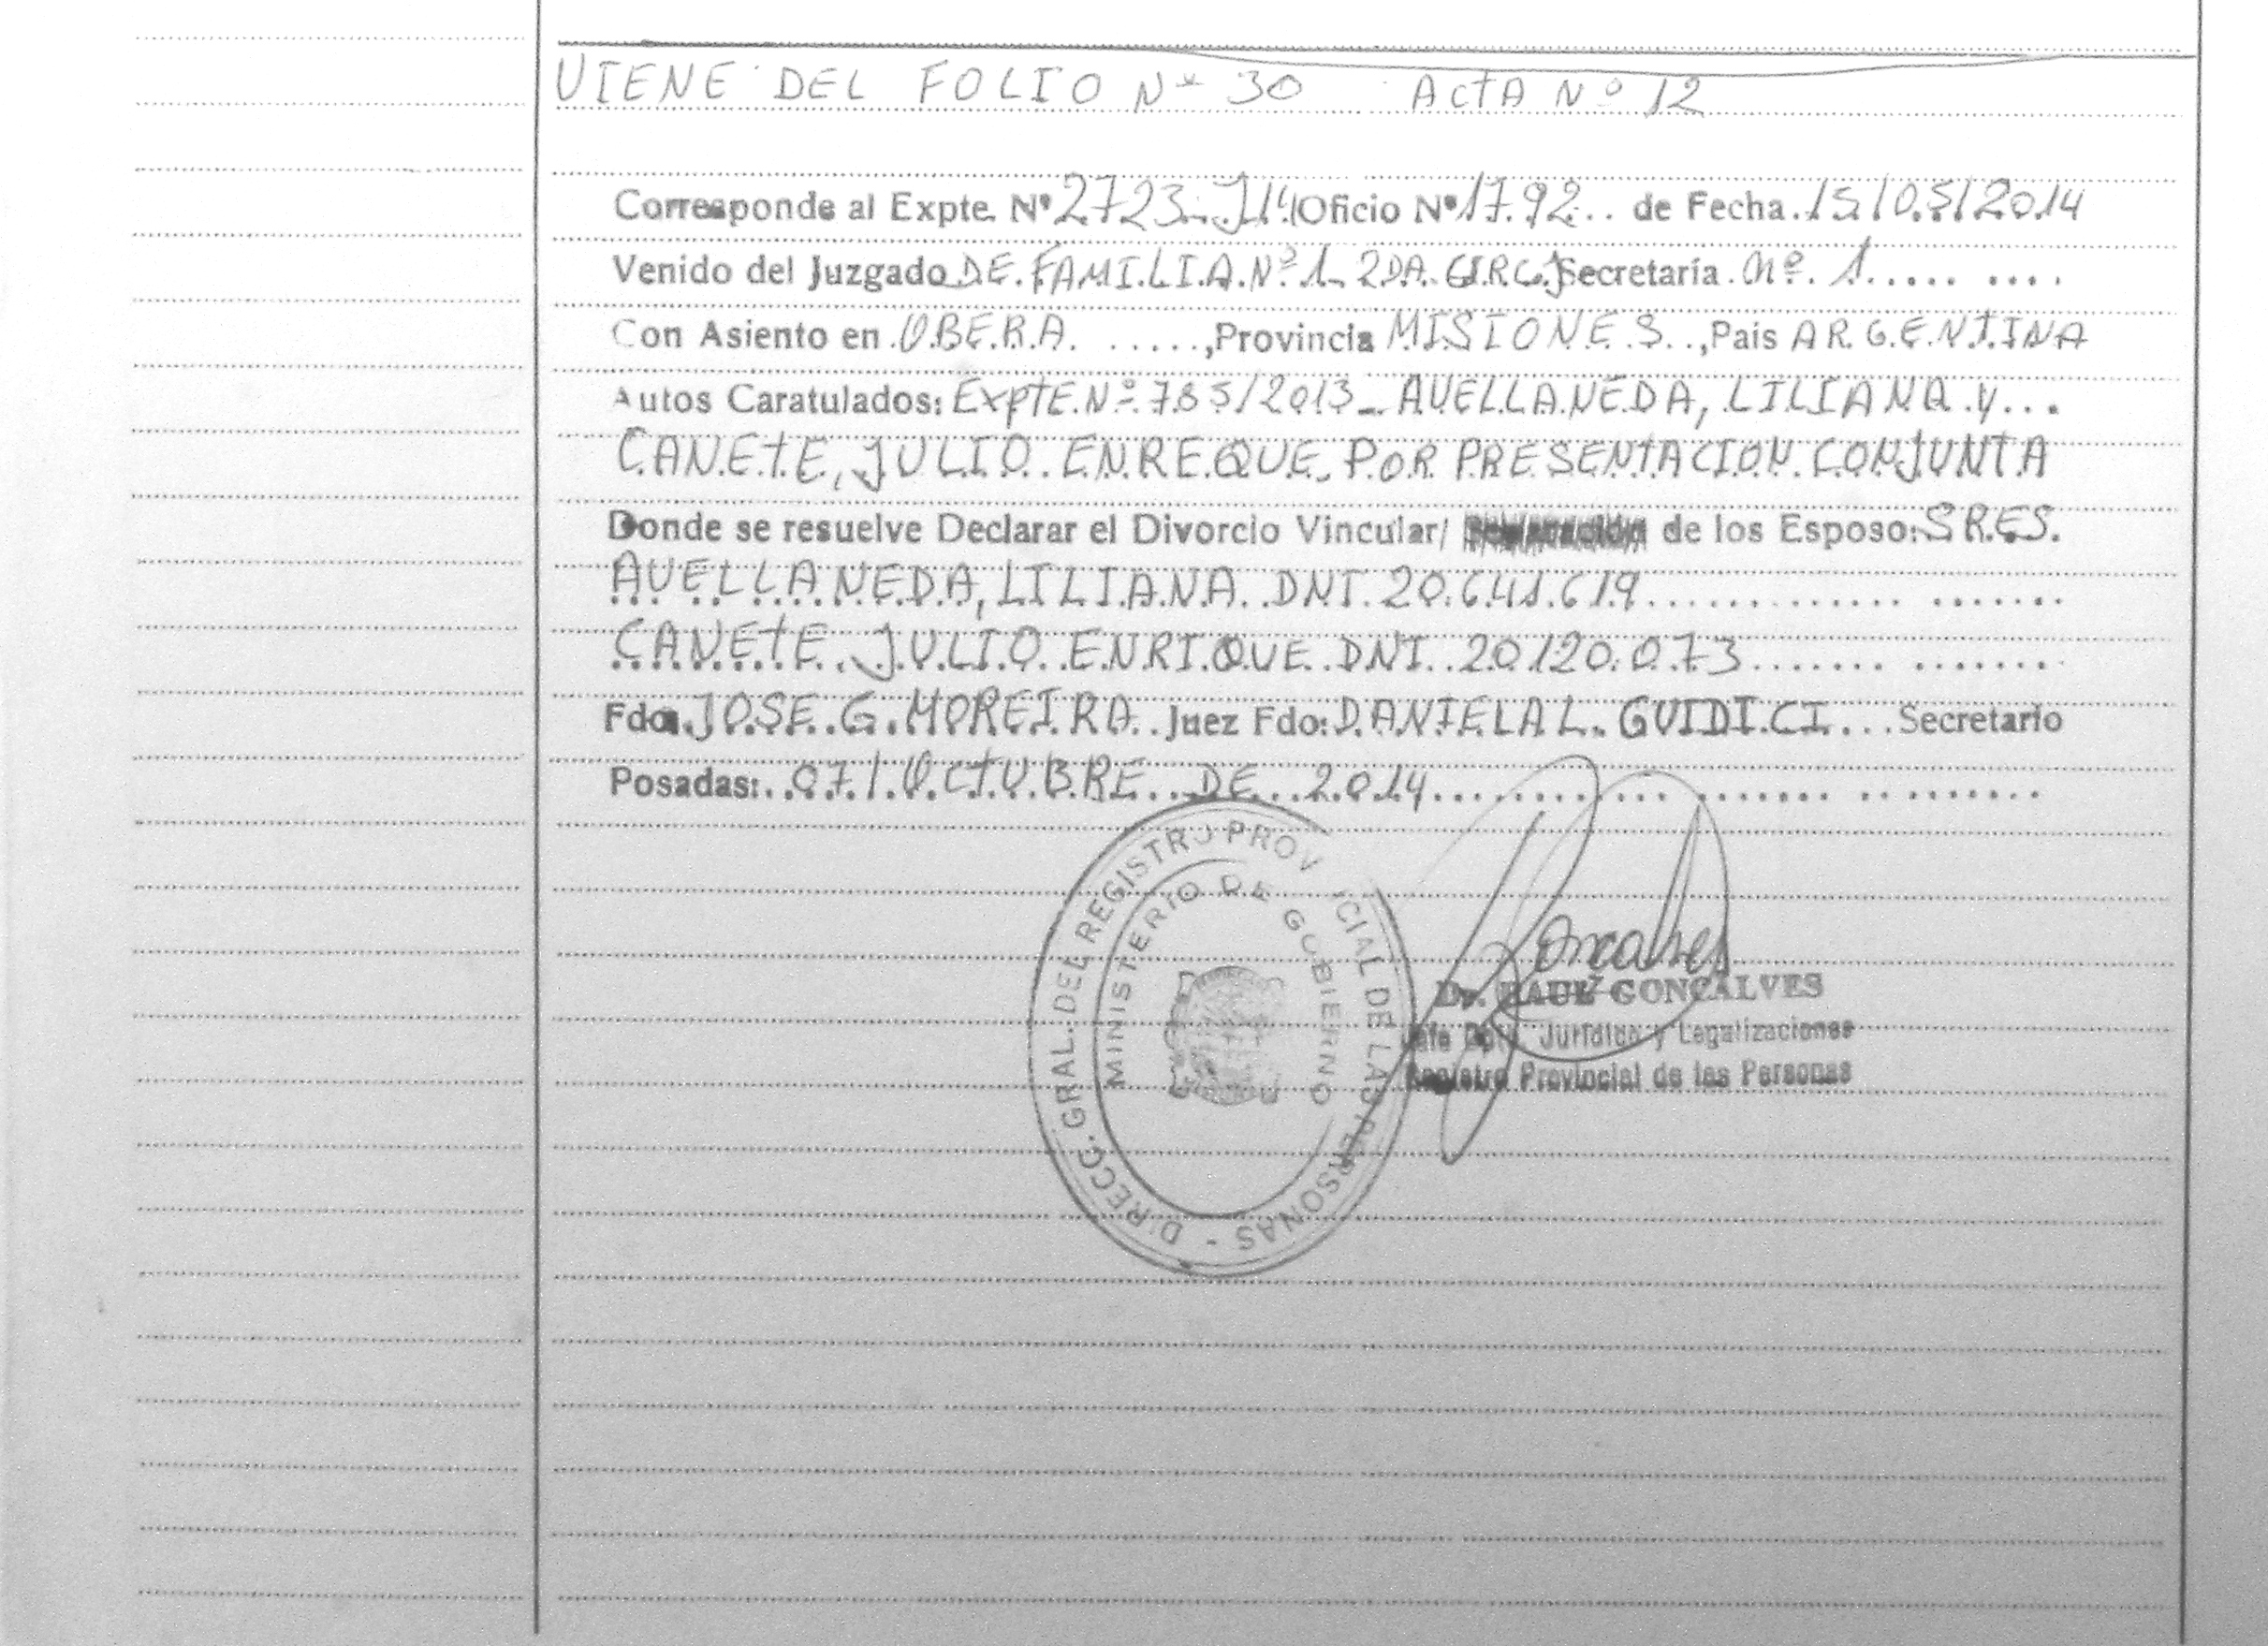 VIENE DEL FOLIO Nº 30 ACTA Nº 12
Corresponde al Expte. Nº 2723-J14 Oficio Nº 1792 de Fecha 15/05/2014
Venido del Juzgado DE FAMILIA Nº 1 2DA. CIRC.J Secretaría Nº 1
Con Asiento en OBERA, Provincia MISIONES, País ARGENTINA
Autos Caratulados: EXPTE Nº 785/2013 - AVELLANEDA, LILIANA y
CANETE, JULIO ENREQUE POR PRESENTACION CONJUNTA
Donde se resuelve Declarar el Divorcio Vincular/ de los Esposo: SRES.
AVELLANEDA, LILIANA DNI 20.641.619
CANETE JULIO ENRIQUE DNI 20.120.073
Fdo. JOSE G. MOREIRA Juez Fdo: DANIELA L. GUIDICI Secretario
Posadas: 07/OCTUBRE DE 2014
DIRECC. GRAL. DEL REGISTRO PROVINCIAL DE LAS PERSONAS -
MINISTERIO DE GOBIERNO
Dr. RAUL GONCALVES
Jefe Dpto. Jurídico y Legalizaciones
Registro Provincial de las Personas